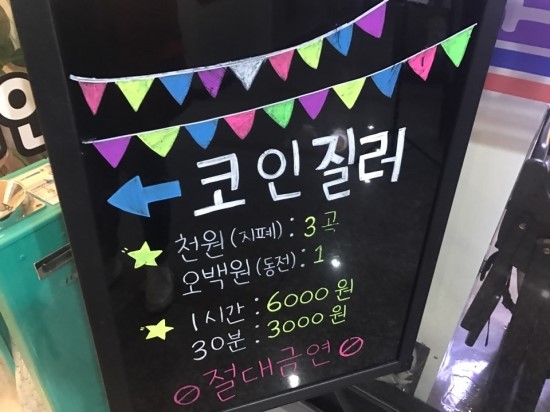 코인질러
천원(지폐): 3곡
오백원(동전): 1
1시간: 6000원
30분: 3000원
절대금연
인